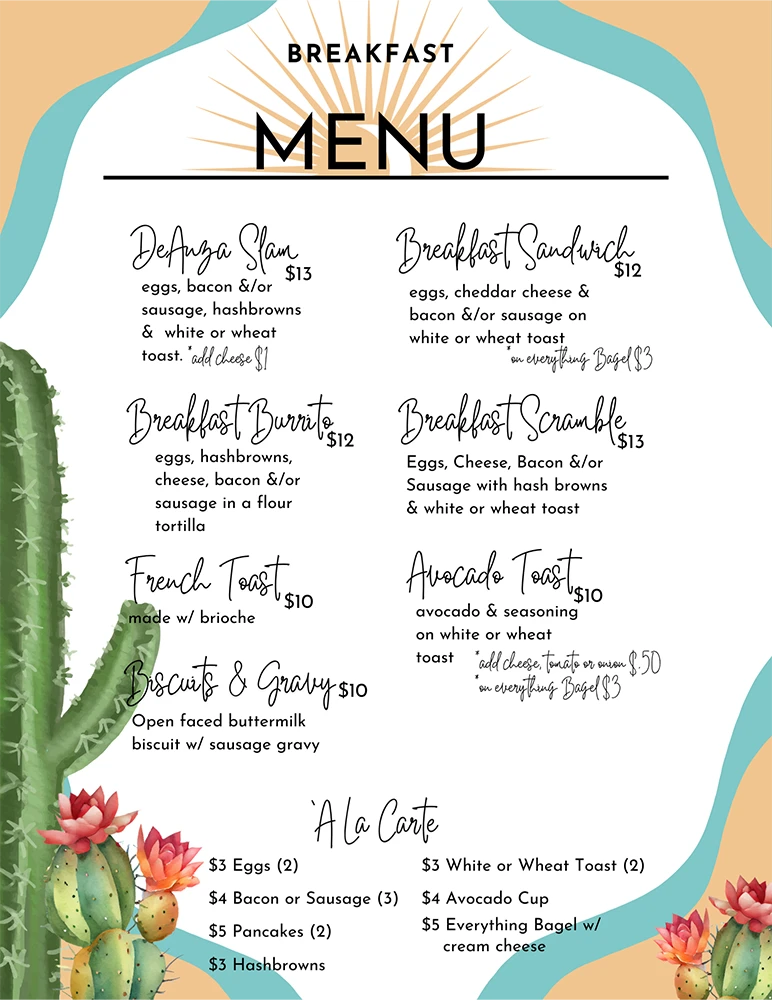 BREAKFAST
MENU
DeAnza Slam
$13
eggs, bacon &/or
sausage, hashbrowns
& white or wheat
toast. *add cheese $1
Breakfast Sandwich
$12
eggs, cheddar cheese &
bacon &/or sausage on
white or wheat toast
*on everything Bagel $3
Breakfast Burrito
$12
eggs, hashbrowns,
cheese, bacon &/or
sausage in a flour
tortilla
Breakfast Scramble
$13
Eggs, Cheese, Bacon &/or
Sausage with hash browns
& white or wheat toast
French Toast
$10
made w/ brioche
Avocado Toast
$10
avocado & seasoning
on white or wheat
toast *add cheese, tomato or onion $.50
*on everything Bagel $3
Biscuits & Gravy $10
Open faced buttermilk
biscuit w/ sausage gravy
`A La Carte
$3 Eggs (2)
$4 Bacon or Sausage (3)
$5 Pancakes (2)
$3 Hashbrowns
$3 White or Wheat Toast (2)
$4 Avocado Cup
$5 Everything Bagel w/
cream cheese